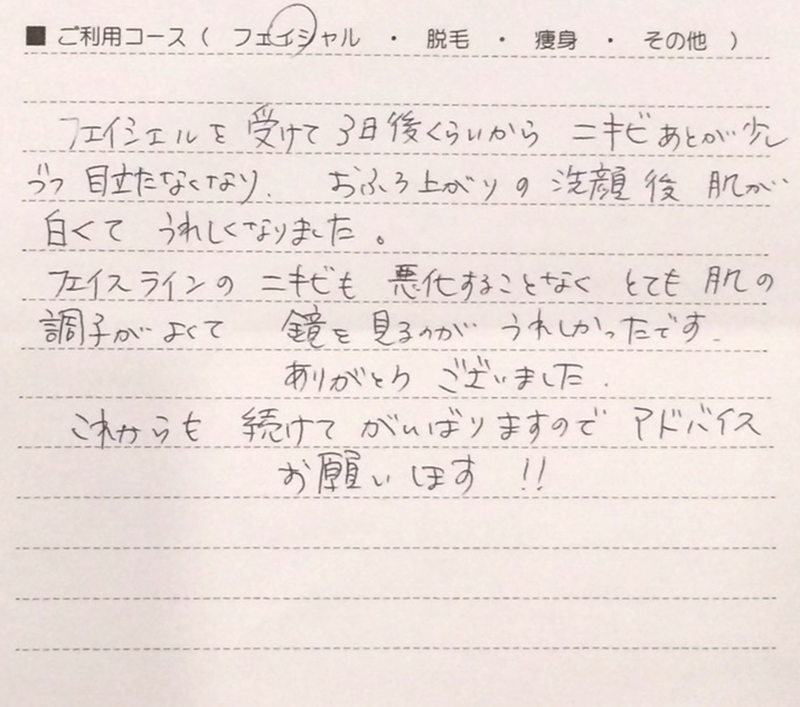 ■ ご利用コース ( フェイシャル ・ 脱毛 ・ 痩身 ・ その他 )
フェイシェルを受けて 3日後くらいから ニキビあとが少し
づつ 目立たなくなり、 おふろ上がりの 洗顔後 肌が
白くて うれしくなりました。
フェイスラインの ニキビも 悪化することなく とても 肌の
調子が よくて 鏡を 見るのが うれしかったです.
ありがとう ございました.
これからも 続けて がんばりますので アドバイス
お願い します !!